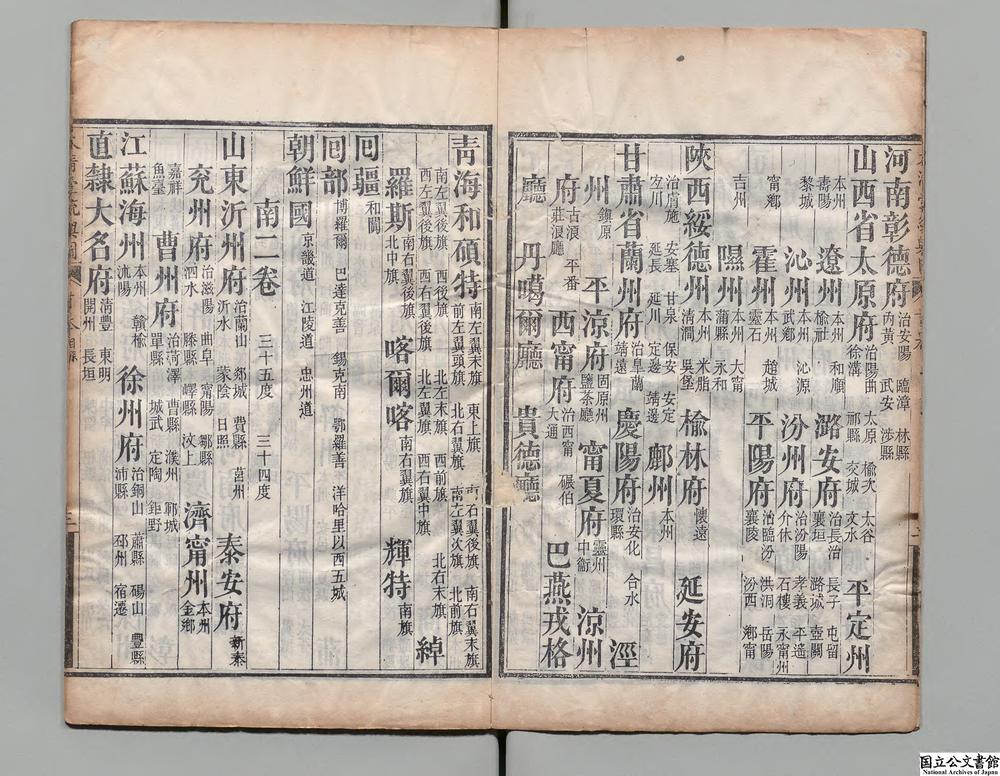 河南彰德府 治安陽 臨漳 林縣 內黃 武安 涉縣
山西省太原府 治陽曲 太原 榆次 太谷 徐溝 祁縣 交城 文水 平定州
本州 壽陽 遼州 本州 和順 榆社 潞安府 治長治 長子 屯留 襄垣 潞城 壺關
黎城 沁州 本州 沁源 武鄉 汾州府 治汾陽 孝義 平遙 介休 石樓 永甯州
甯鄉 霍州 本州 趙城 靈石 平陽府 治臨汾 洪洞 岳陽 襄陵 汾西 鄉甯
吉州 隰州 本州 大甯 蒲縣 永和
陝西綏德州 本州 米脂 清澗 吳堡 榆林府 懷遠 延安府
治膚施 安塞 甘泉 保安 安定 宜川 延長 延川 定邊 靖邊 鄜州 本州
甘肅省蘭州府 治皋蘭 靖遠 慶陽府 治安化 合水 環縣 涇
州 鎮原 平涼府 固原州 鹽茶廳 甯夏府 靈州 中衞 涼州
府 古浪 平番 莊浪廳 西甯府 治西甯 碾伯 大通 巴燕戎格
廳 丹噶爾廳 貴德廳
青海和碩特 南左翼末旗 東上旗 南右翼後旗 南右翼末旗 前左翼頭旗 北右翼旗 南左翼次旗 北前旗
南左翼後旗 西右後旗 北左末旗 西前旗 北右末旗 西左翼後旗 西右翼後旗 北左翼旗 西右翼中旗 綽
羅斯 南右翼後旗 北中旗 喀爾喀 南右翼旗 輝特 南旗
回疆 和闐
回部 博羅爾 巴達克善 錫克南 鄂羅善 洋哈里以西五城
朝鮮國 京畿道 江陵道 忠州道
南二卷 三十五度 三十四度
山東沂州府 治蘭山 郯城 費縣 莒州 沂水 蒙陰 日照 泰安府 新泰
兗州府 治滋陽 曲阜 甯陽 鄒縣 泗水 滕縣 嶧縣 汶上 濟甯州 本州 金鄉
嘉祥 魚臺 曹州府 治菏澤 曹縣 濮州 鄆城 單縣 城武 定陶 鉅野
江蘇海州 本州 贛榆 沭陽 徐州府 治銅山 蕭縣 碭山 豐縣 沛縣 邳州 宿遷
直隸大名府 清豐 東明 開州 長垣
国立公文書館
National Archives of Japan